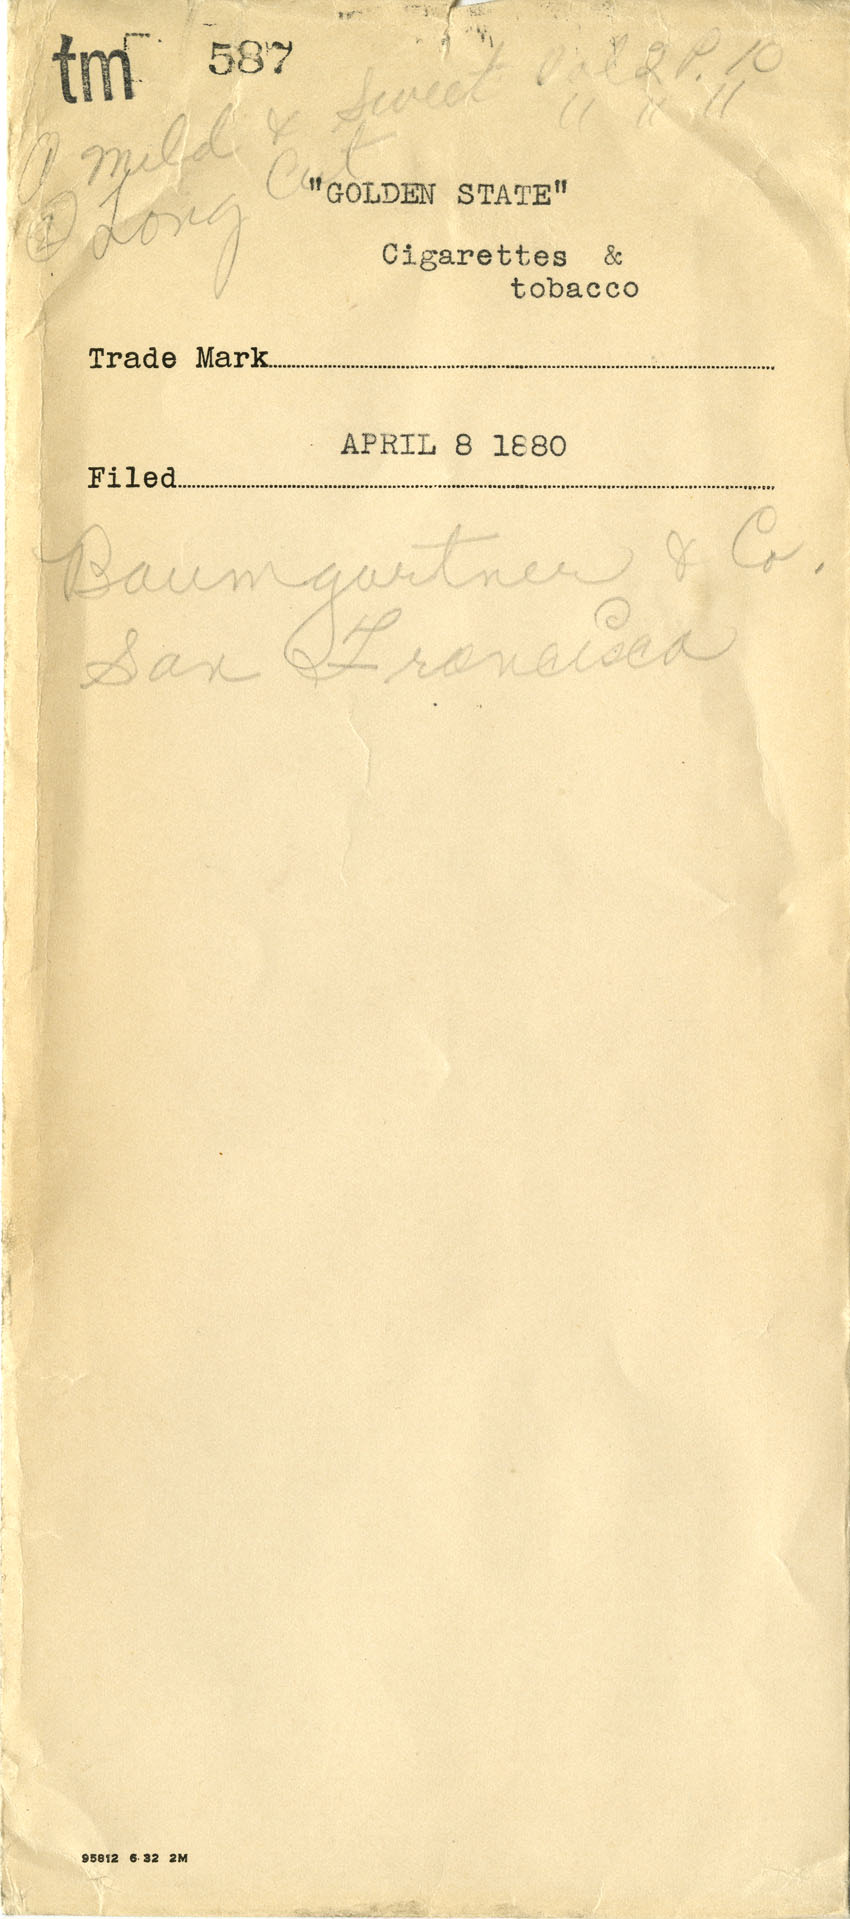 tm 587
① Mild & Sweet Vol 2 P. 10
② Long Cut " " "
"GOLDEN STATE"
Cigarettes &
tobacco
Trade Mark
APRIL 8 1880
Filed
Baumgartner & Co.
San Francisco
95812 6-32 2M